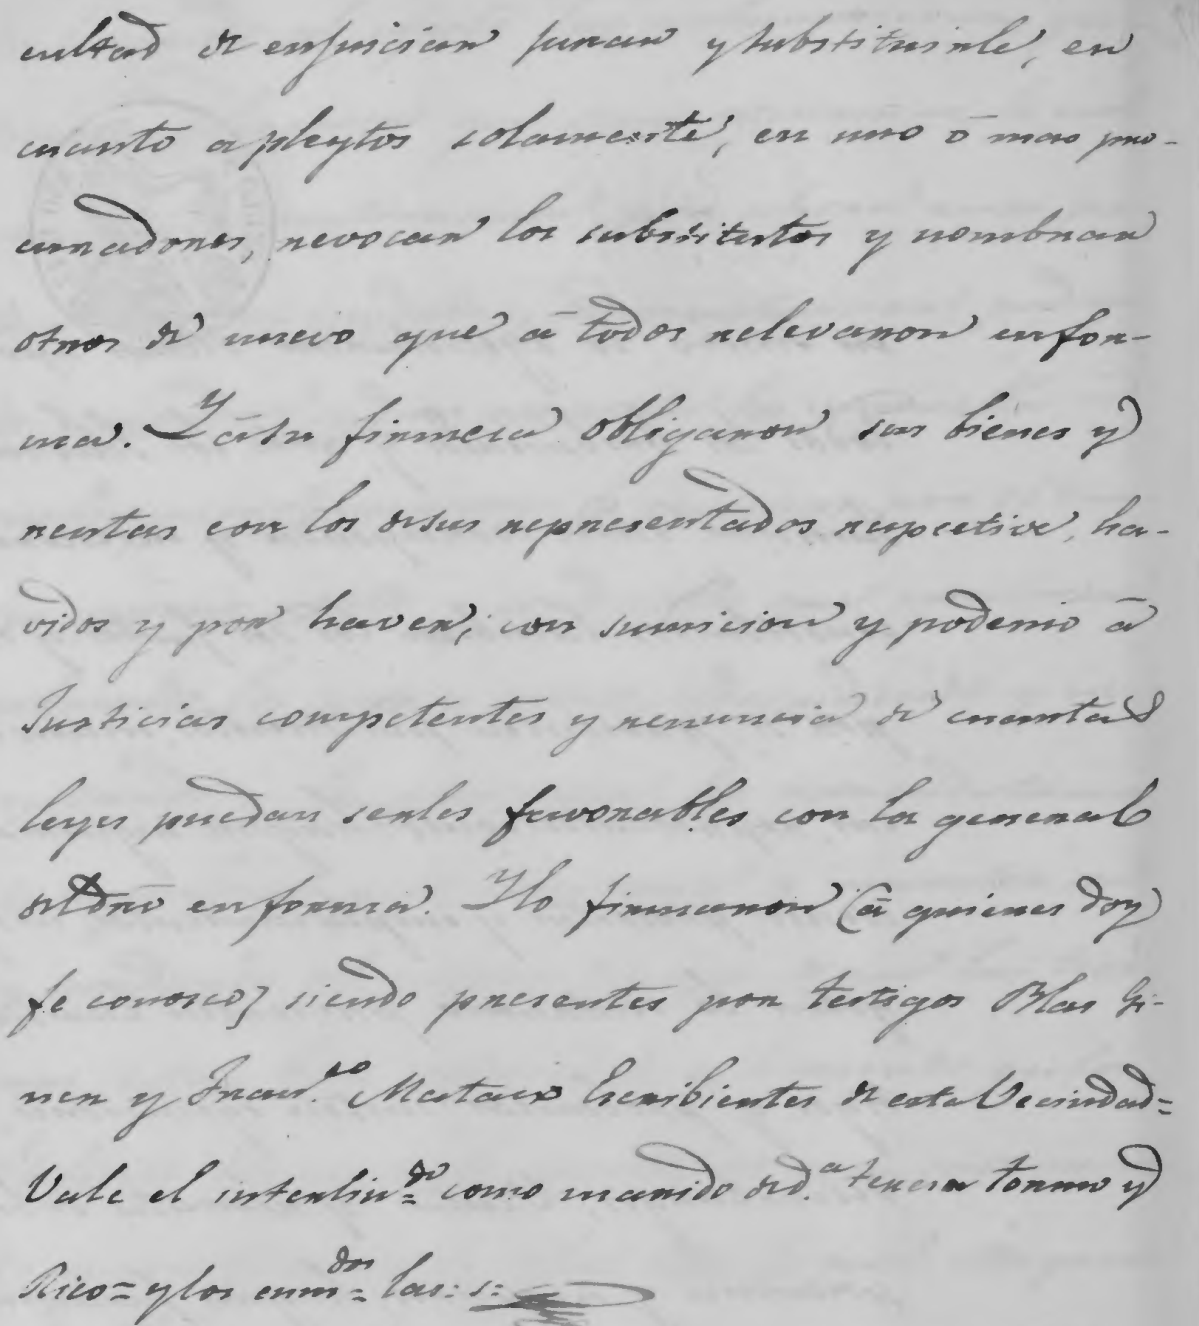 cultad de enjuiciar jurar y substituirle, en
cuanto a pleytos solamente, en uno ō mas pro-
curadores, revocar los substitutos y nombrar
otros de nuevo que ā todos relevaron en for-
ma. Y ā su firmeza obligaron sus bienes y
rentas con los de sus representados respective, ha-
vidos y por haver, con sumicion y poderio ā
Justicias competentes y renuncia de cuantas
leyes puedan serles favorables con la general
del dr̄o en forma. Y lo firmaron (ā quienes doy
fe conosco) siendo presentes por testigos Blas Gi-
ner y Fran.co Mataix Escribientes de esta Vecindad=
Vale el interlin.do= como marido de d.a Teresa Tormo y
Rico= y los enm.dos= las: s: